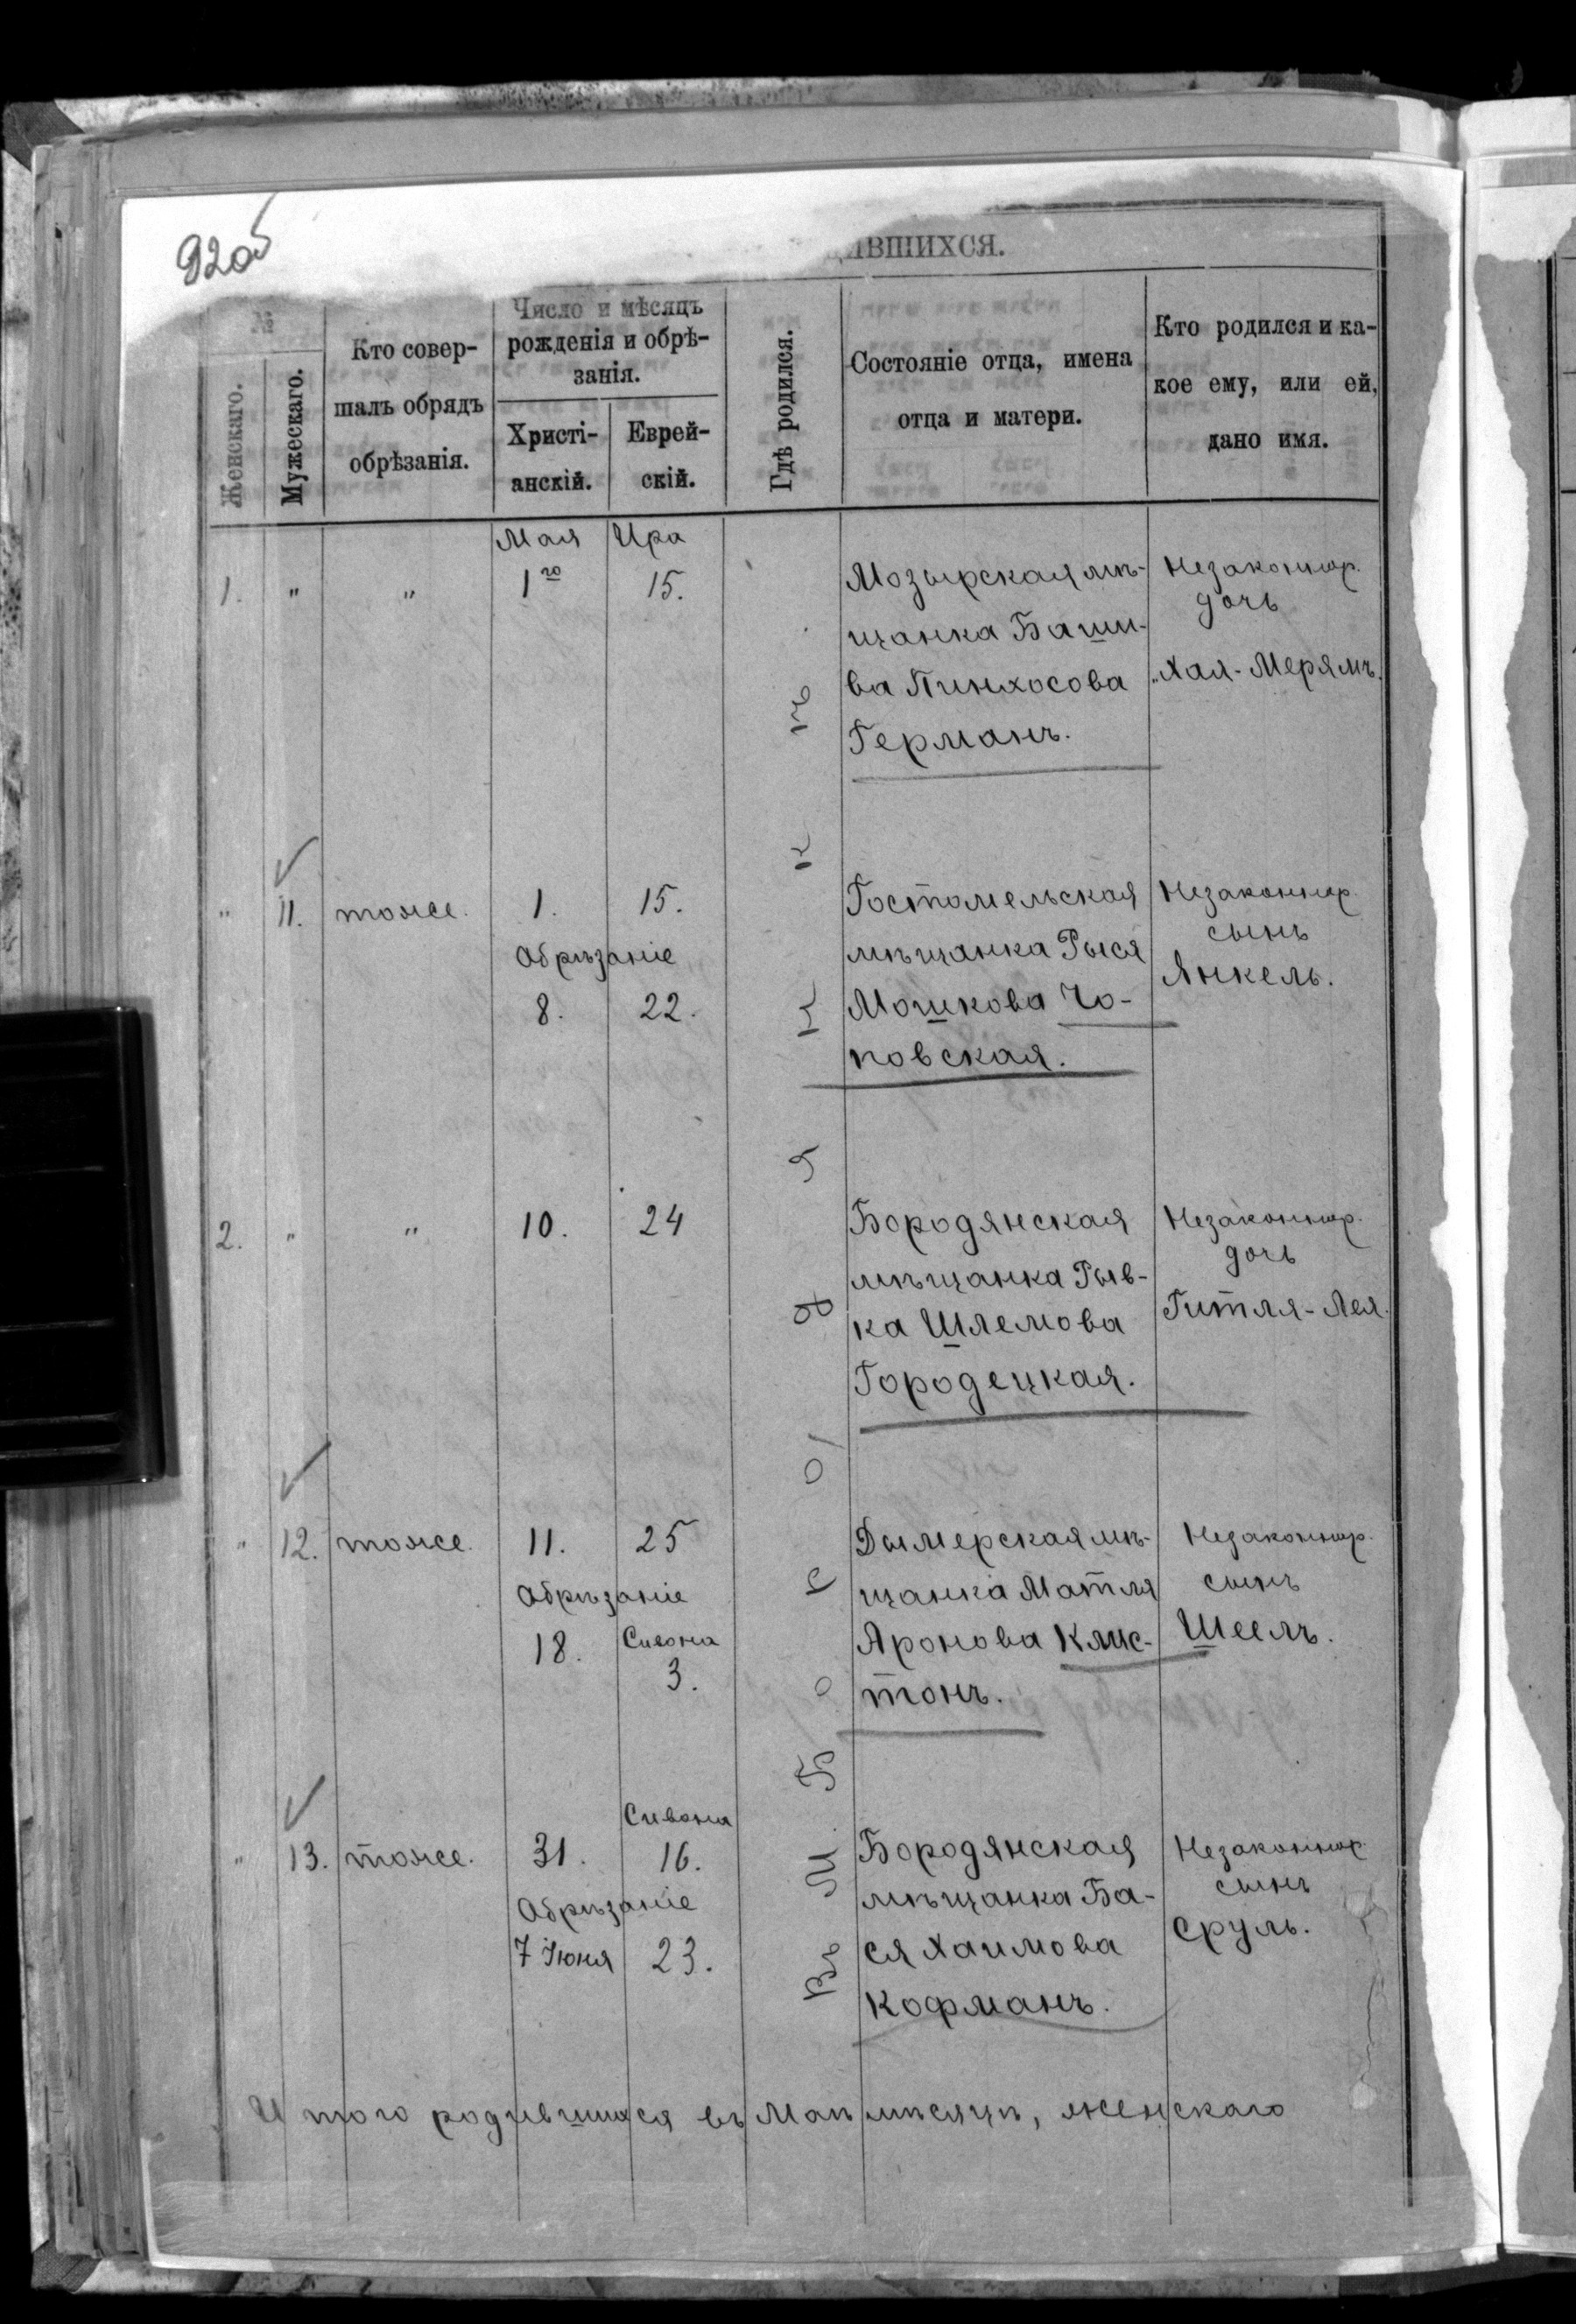 92об
ДИВШИХСЯ.
№
Женскаго.
Мужескаго.
Кто совер-
шалъ обрядъ
обрѣзанія.
Число и мѣсяцъ
рожденія и обрѣ-
занія.
Христі-
анскій.
Еврей-
скій.
Гдѣ родился.
Состояніе отца, имена
отца и матери.
Кто родился и ка-
кое ему, или ей,
дано имя.
Мая Ира
1. " " 1го 15.
Мозырская мѣ-
щанка Баши-
ва Пинхосова
Германъ.
Незаконнор.
дочь
"Хая-Мерямъ.
" 11. тоже. 1. 15.
Обрѣзаніе
8. 22.
Гостомельская
мѣщанка Рыся
Мошкова Чо-
повская.
Незаконнор.
сынъ
Янкель.
2. " " 10. 24
Бородянская
мѣщанка Рыв-
ка Шлемова
Городецкая.
Незаконнор.
дочь
Гитля-Лея.
" 12. тоже. 11. 25
Обрѣзаніе
18. Сивона
3.
Дымерская мѣ-
щанка Матля
Аронова Клис-
тонъ.
Незаконнор.
сынъ
Шеелъ.
Сивона
" 13. тоже. 31. 16.
Обрѣзаніе
7 Іюня 23.
Бородянская
мѣщанка Ба-
ся Хаимова
Кофманъ.
Незаконнор.
сынъ
Сруль.
Въ М. Бородянкѣ
Итого родившихся въ Маѣ мѣсяцѣ, женскаго